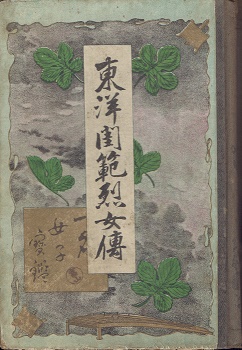 東洋閨範烈女傳
一名
女子
寶鑑